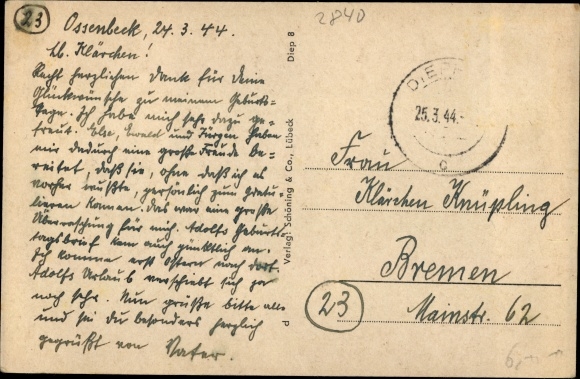 23
Ossenbeck, 24.3.44.
Lb. Klärchen!
Recht herzlichen Dank für Deine
Glückwünsche zu meinem Geburts-
tage. Ich habe mich sehr dazu ge-
freut. Else, Ewald und Jürgen haben
mir dadurch eine große Freude be-
reitet, daß sie, ohne daß ich es
vorher wußte, persönlich zum Gratu-
lieren kamen. Das war eine große
Überraschung für mich. Adolfs Geburts-
tagsbrief kam auch pünktlich an.
Ich komme erst Ostern nach dort.
Adolfs Urlaub verschiebt sich ja
noch sehr. Nun grüße bitte alle
und sei du besonders herzlich
gegrüßt von Vater.
Diep 8
Verlag: Schöning & Co., Lübeck
d
2840
DIEP
25.3.44.
c
Frau
Klärchen Knüpling
Bremen
23
Mainstr. 62